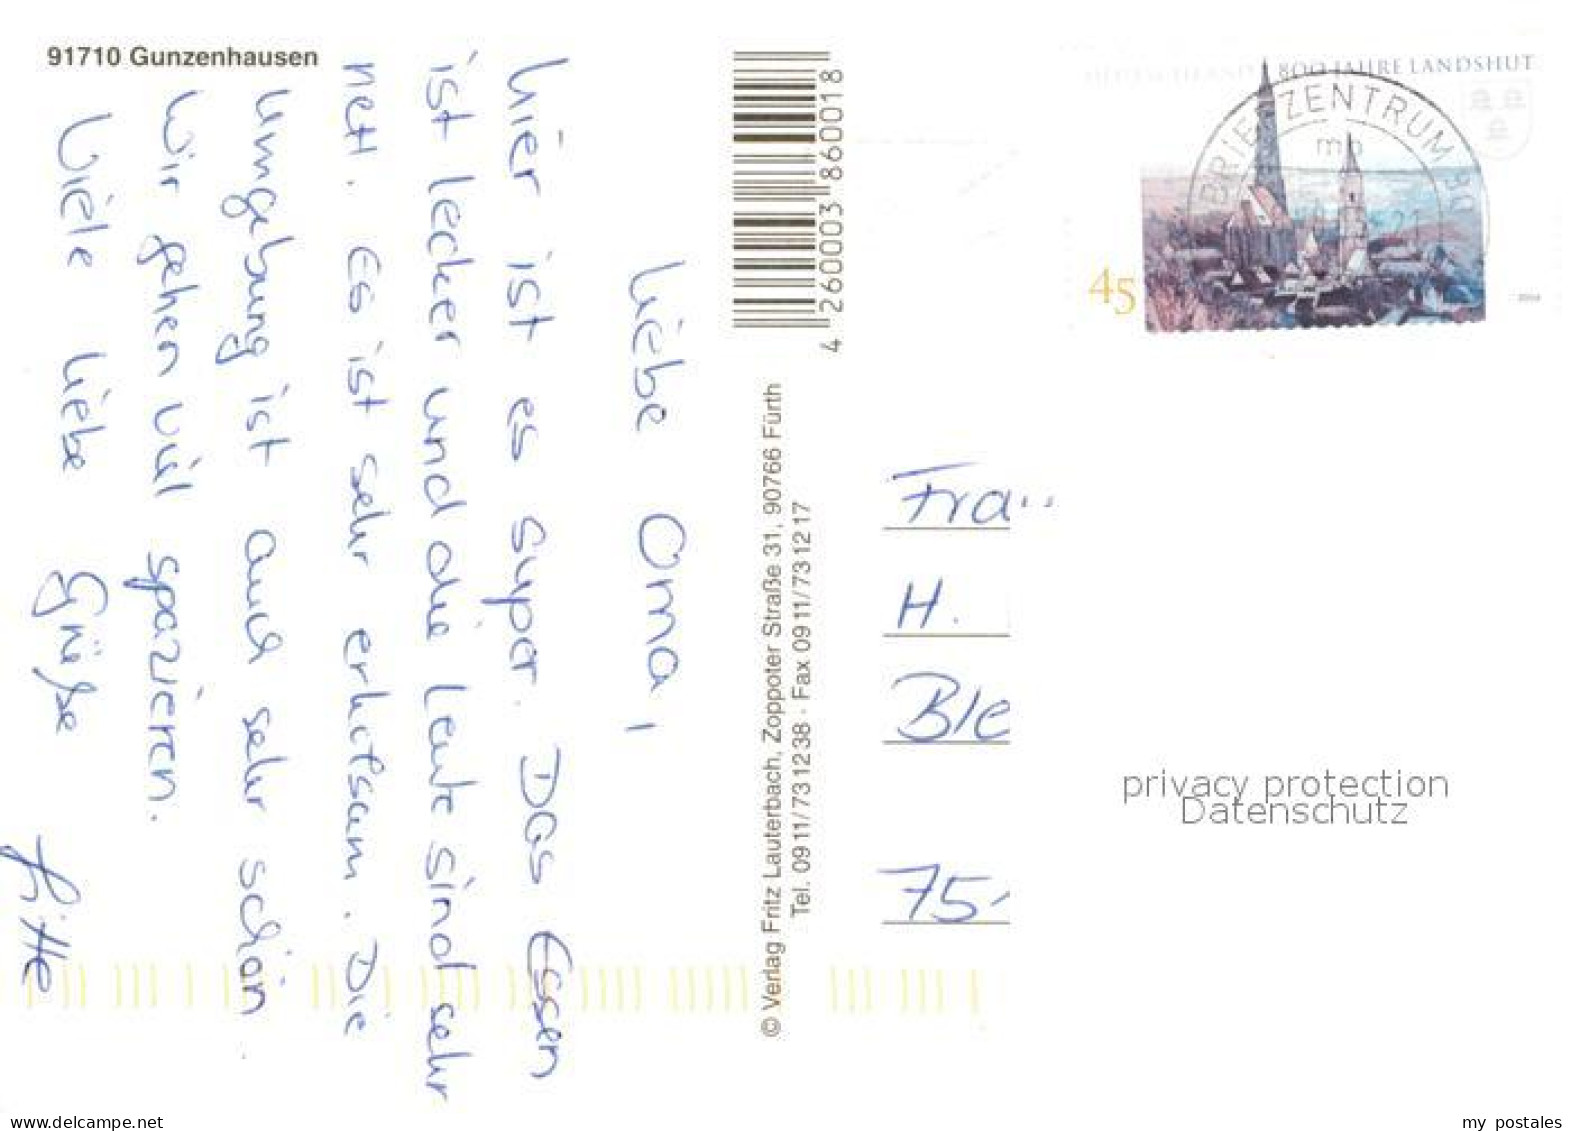 91710 Gunzenhausen
Liebe Oma,
hier ist es super. Das Essen
ist lecker und die Leute sind sehr
nett. Es ist sehr erholsam. Die
Umgebung ist auch sehr schön
Wir gehen viel spazieren.
Viele liebe Grüße
4 260003 860018
© Verlag Fritz Lauterbach, Zoppoter Straße 31, 90766 Fürth
Tel. 0911/731238 · Fax 0911/731217
DEUTSCHLAND 800 JAHRE LANDSHUT
BRIEFZENTRUM
mb
21
45
Frau
H.
Ble
75
privacy protection
Datenschutz
www.delcampe.net
my_postales